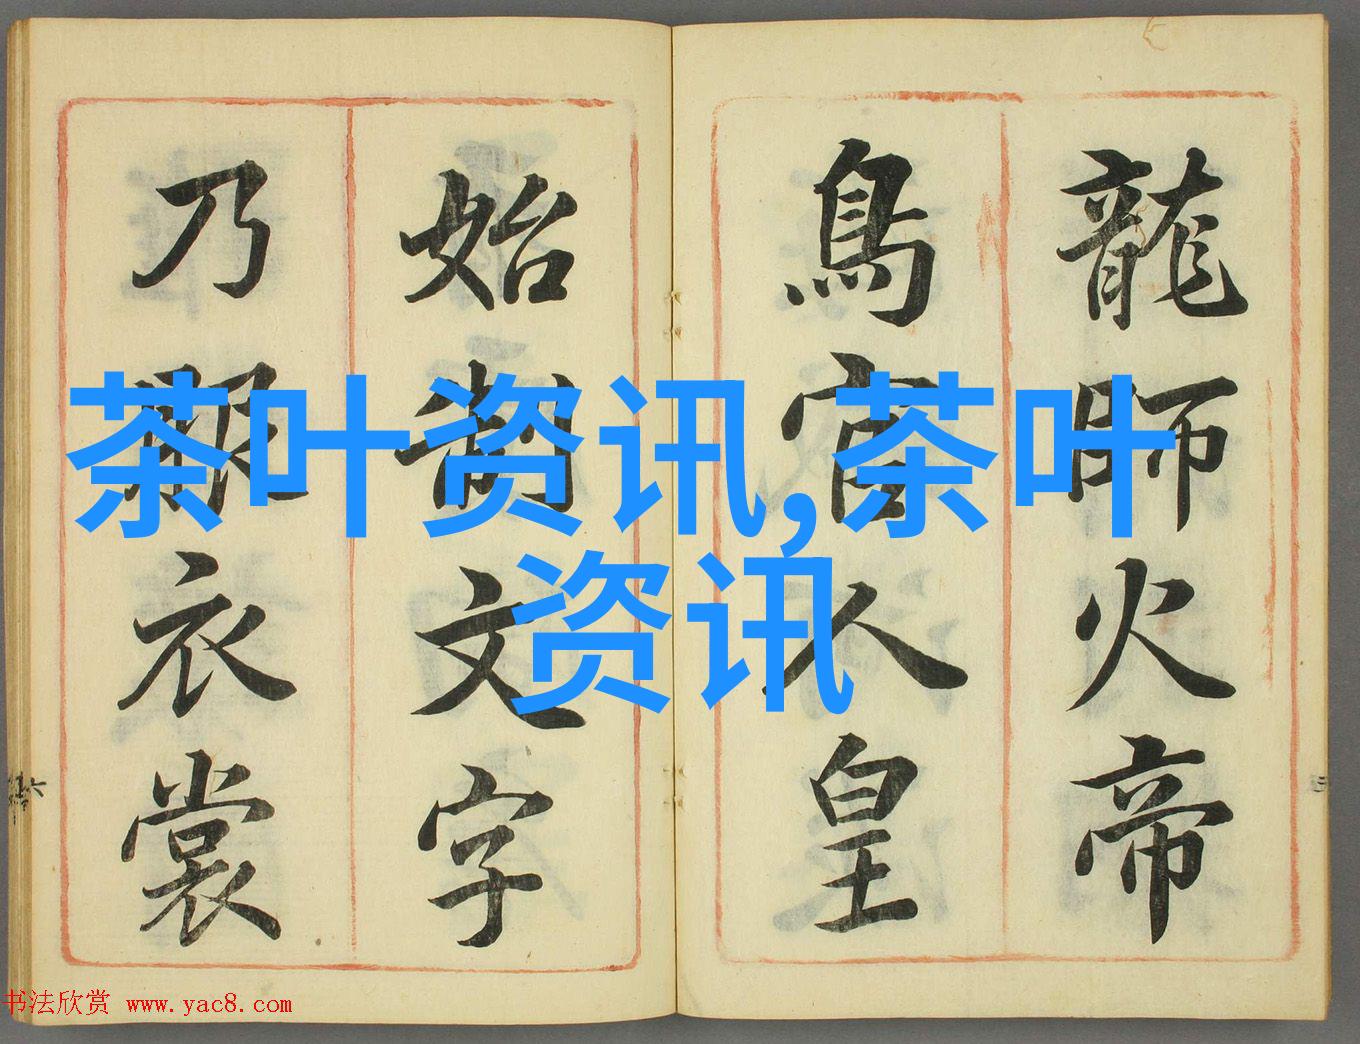 龍師火帝
鳥官人皇
始制文字
乃服衣裳
茶叶资讯,茶叶
资讯
书法欣赏 www.yac8.com